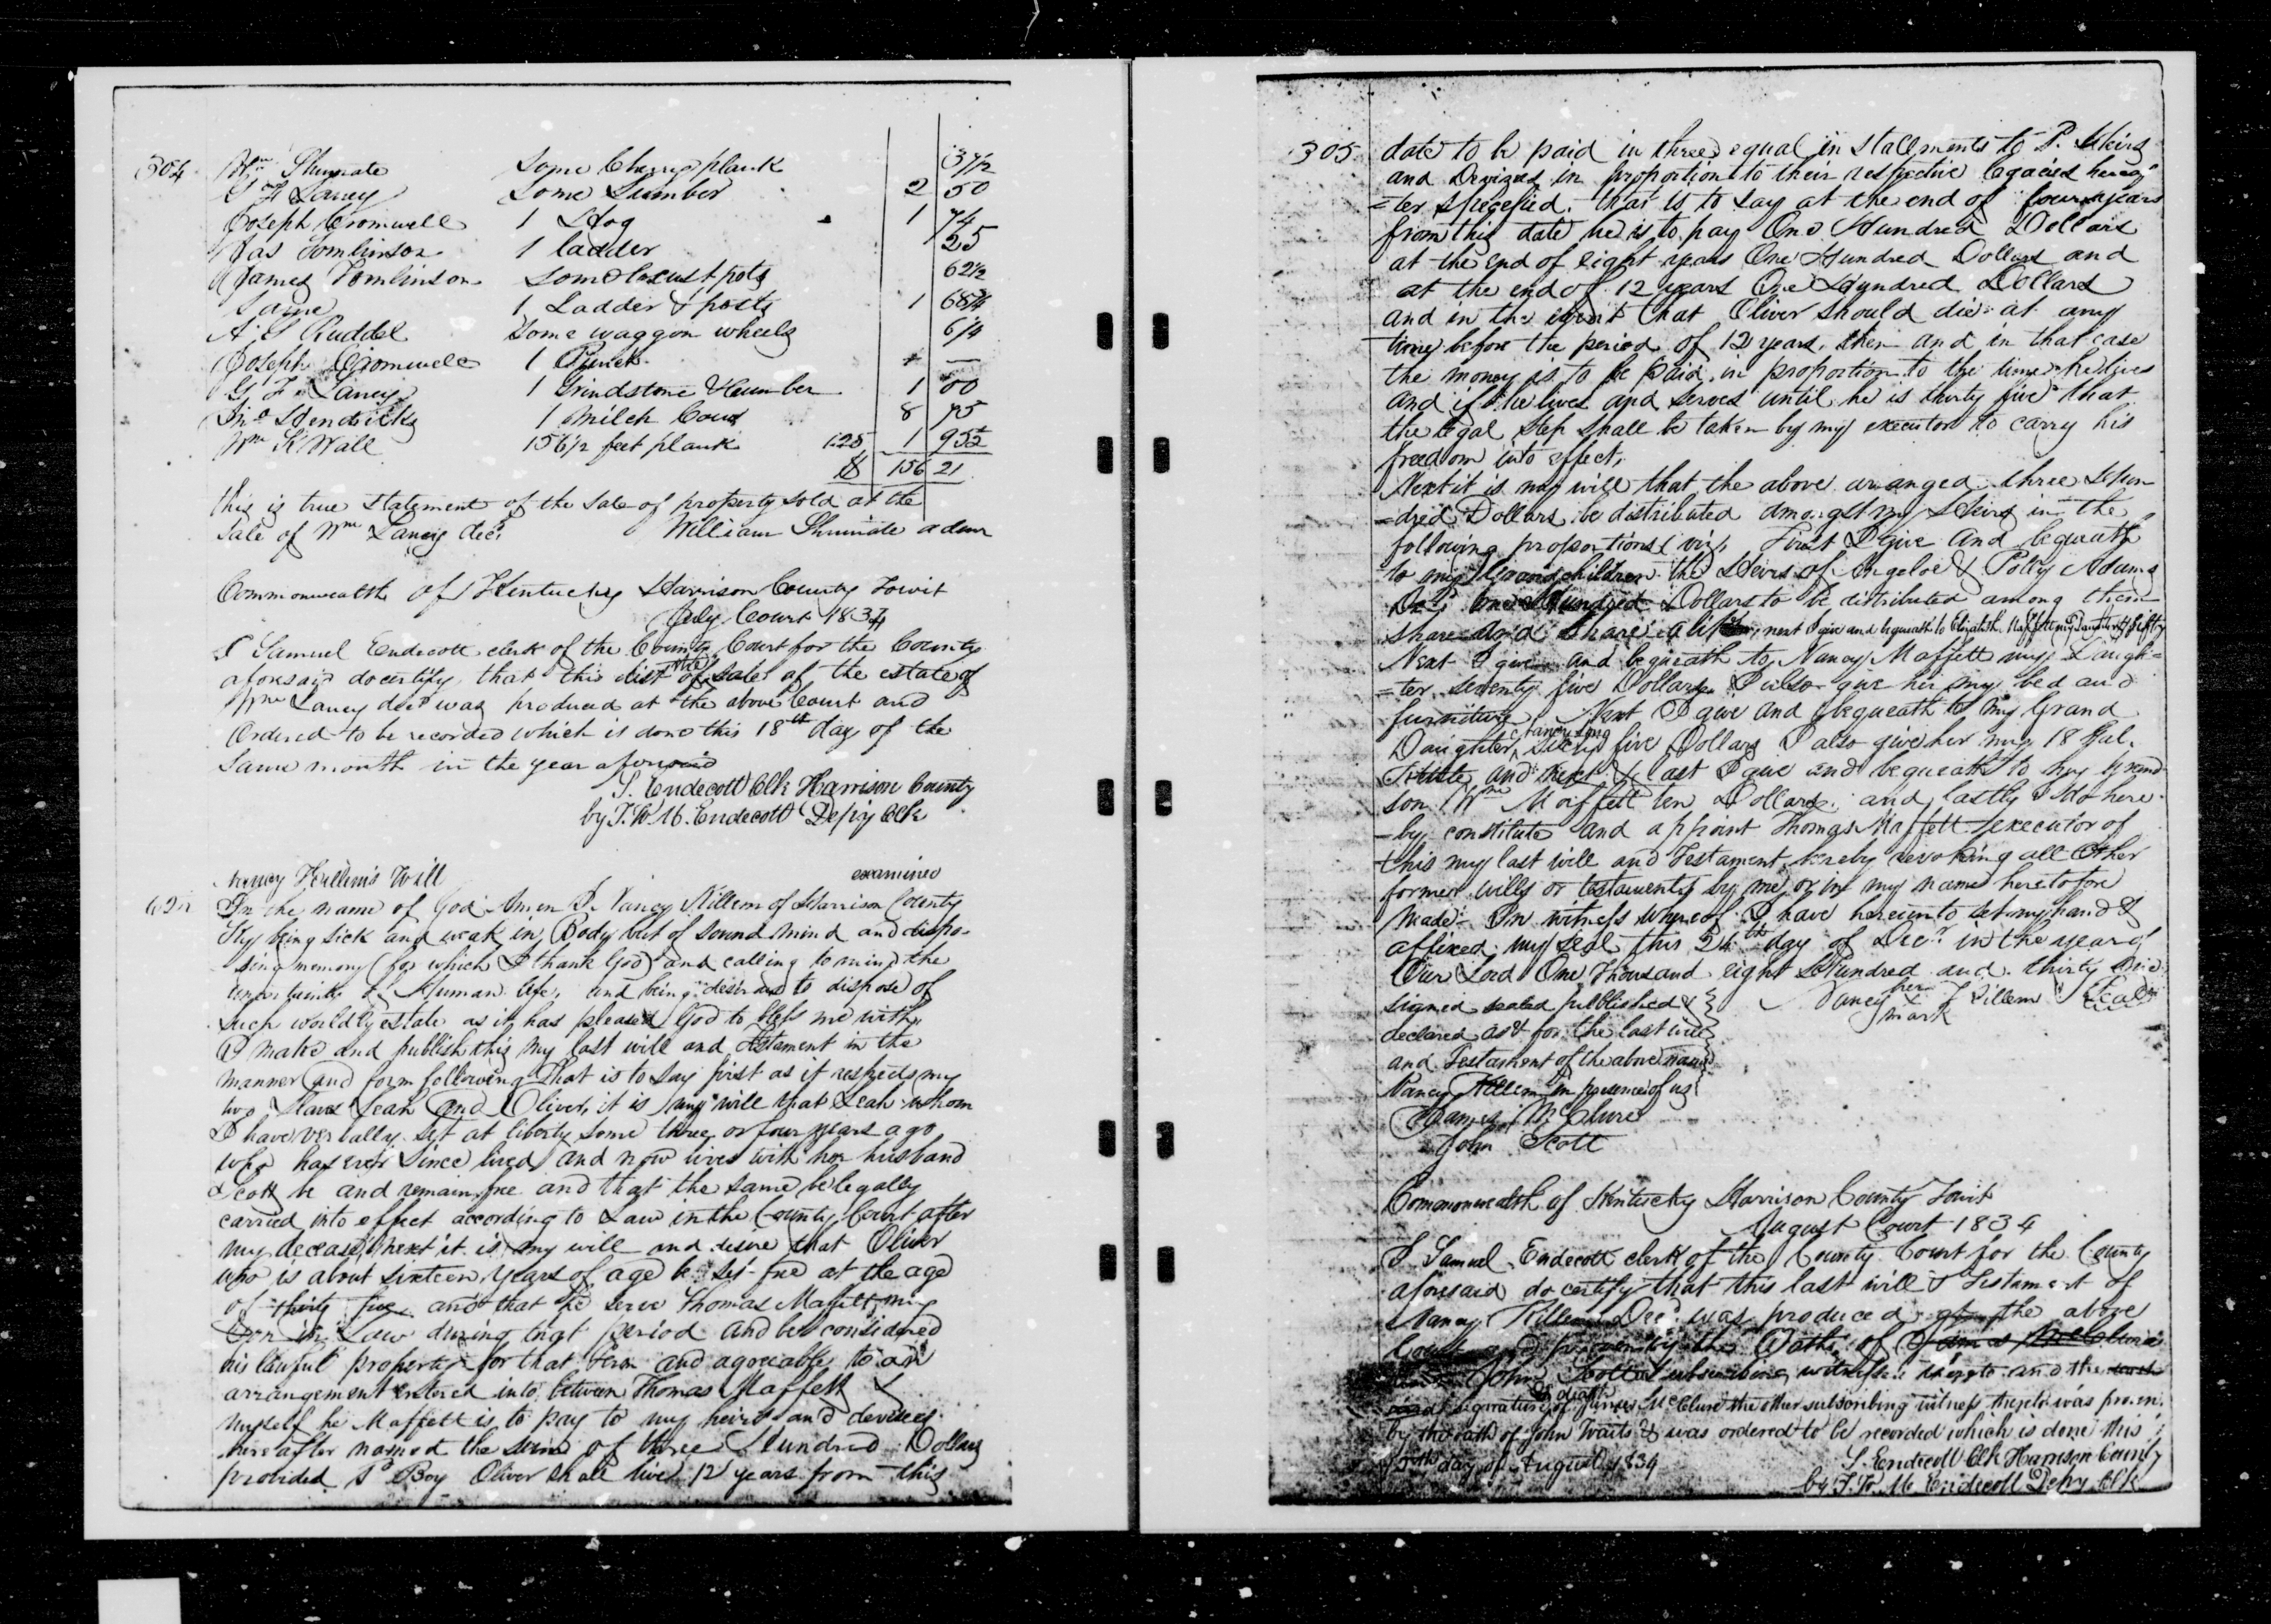 304 Wm Shumate Some Cherry plank 37½
G F Laney Some Lumber 2 50
Joseph Cromwell 1 Hog 1 74
Jas Tomlinson 1 ladder 25
James Tomlinson Some locust pots 62½
Same 1 Ladder & posts 1 68¾
A. S Ruddel Some waggon wheels 6¼
Joseph Cromwell 1 Punch —
G F Laney 1 Grindstone & 1 00
Jno Hendricks 1 Milch Cow 8 75
Wm K Wall 156½ feet plank 125 1 95½
$ 156 21
this is true statement of the sale of property sold at the
Sale of Wm Laney decd William Shumate admr
Commonwealth of Kentucky Harrison County Towit
July Court 1834
I Samuel Endecott clerk of the County Court for the County
aforesaid do certify that this list of the sales of the estate of
Wm Laney decd was produced at the above Court and
Ordered to be recorded which is done this 18th day of the
Same month in the year aforesaid
S. Endecott Clk Harrison County
by J. W. M. Endecott Depy Clk
Nancy Killem's Will examined
In the name of God Amen I Nancy Killem of Harrison County
Ky being sick and weak in Body but of sound mind and dispo-
-sing memory (for which I thank God) and calling to mind the
uncertainty of Human life, and being desirous to dispose of
such worldly estate as it has pleased God to bless me with
I make and publish this my last will and testament in the
manner and form following That is to say first as it respects my
two Slaves Leah and Oliver, it is my will that Leah whom
I have verbally set at liberty some three or four years ago
who has ever since lived and now lives with her husband
Scott be and remain free and that the same be legally
carried into effect according to Law in the County Court after
my decease, next it is my will and desire that Oliver
who is about sixteen years of age be set free at the age
of thirty five and that he serve Thomas Maffett my
Son in Law during that period and be considered
his lawful property for that term and agreeable to an
arrangement entered into between Thomas Maffett &
myself he Maffett is to pay to my heirs and devisees
hereafter named the sum of three Hundred Dollars
provided sd Boy Oliver shall live 12 years from this
305 date to be paid in three equal in stallments to sd Heirs
and Devizees in proportion to their respective legacies hereaf
=ter specefied. that is to say at the end of four years
from this date he is to pay One Hundred Dollars
at the end of eight years One Hundred Dollars and
at the end of 12 years One Hundred Dollars
and in the event that Oliver should die at any
time before the period of 12 years, then and in that case
the money is to be paid in proportion to the time he lives
and if he lives and serves until he is thirty five that
the legal step shall be taken by my executor to carry his
freedom into effect,
Next it is my will that the above arranged three Hun
=dred Dollars be distributed amongst my Heirs in the
following proportions (viz, First I give and bequeath
to my Grand children the Heirs of Angelve & Polly Adams
Decd One Hundred Dollars to be distributed among them
share and share alike, next I give and bequeath to Elizabeth Maffett my daughter fifty
Next I give and bequeath to Nancy Maffett my Daugh=
=ter seventy five Dollars I also give her my bed and
furniture, Next I give and bequeath to my Grand
Daughter Nancy Sixty five Dollars I also give her my 18 Gal.
Kettle and next & last I give and bequeath to my Grand
son Wm Maffett ten Dollars, and lastly I do here
-by constitute and appoint Thomas Maffett executor of
this my last will and Testament hereby revoking all other
former wills or testaments by me or in my name heretofore
made- In witness whereof I have hereunto set my hand &
affixed my seal this 24th day of Decr in the year of
Our Lord One Thousand eight Hundred and thirty
signed sealed published & Nancy her x mark Killem Seal
declared as & for the last will
and Testament of the above named
Nancy Killem in presence of us
James McClure
John Scott
Commonwealth of Kentucky Harrison County Towit
August Court 1834
I Samuel Endecott clerk of the County Court for the County
aforesaid do certify that this last will & Testament of
Nancy Killem Decd was produced at the above
Court and proven by the Oath of James McClure
John Scott a subscribing witness thereto and the
signature of James McClure the other subscribing witness thereto was proven
by the oath of John Waits & was ordered to be recorded which is done this
day of August 1834 S. Endecott Clk Harrison County
by J. W. M. Endecott Depy Clk